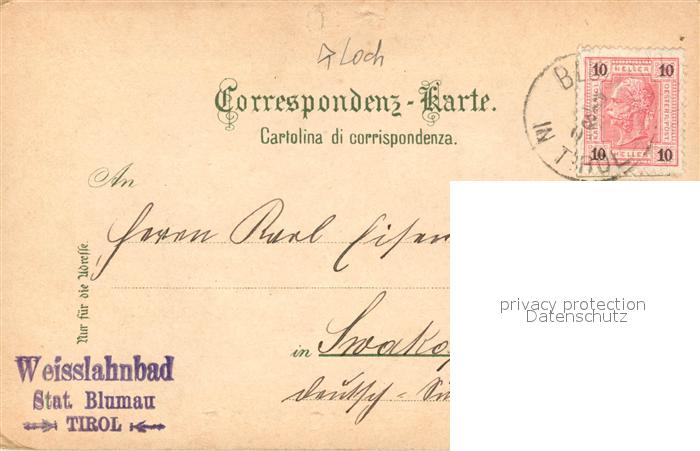 Loch
Correspondenz-Karte.
Cartolina di corrispondenza.
10 HELLER 10
OESTERR.POST
10 HELLER 10
BL
IN TIROL
An
Herrn Karl Eisen
Nur für die Adresse.
in Swakop
Deutsch-Sü
privacy protection
Datenschutz
Weisslahnbad
Stat. Blumau
TIROL